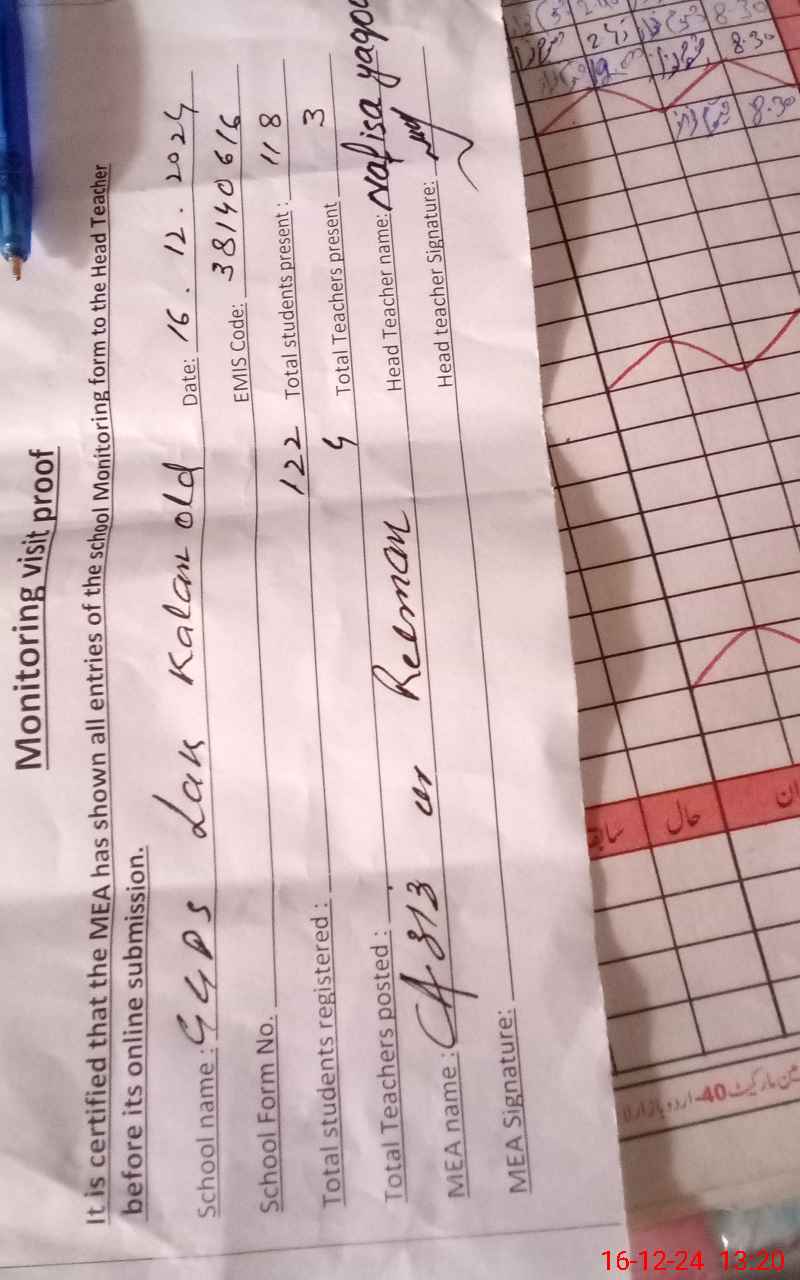 Monitoring visit proof
It is certified that the MEA has shown all entries of the school Monitoring form to the Head Teacher
before its online submission.
School name : GGPS Lak Kalan old Date: 16 . 12 . 2024
School Form No. EMIS Code: 38140616
Total students registered : 122 Total students present : 118
Total Teachers posted : 4 Total Teachers present 3
MEA name : Reeman Head Teacher name: Nafisa yaqoo
MEA Signature: Head teacher Signature:
2.45 8.30
8.30
8.30
حال
40-اردو بازار
16-12-24 13:20